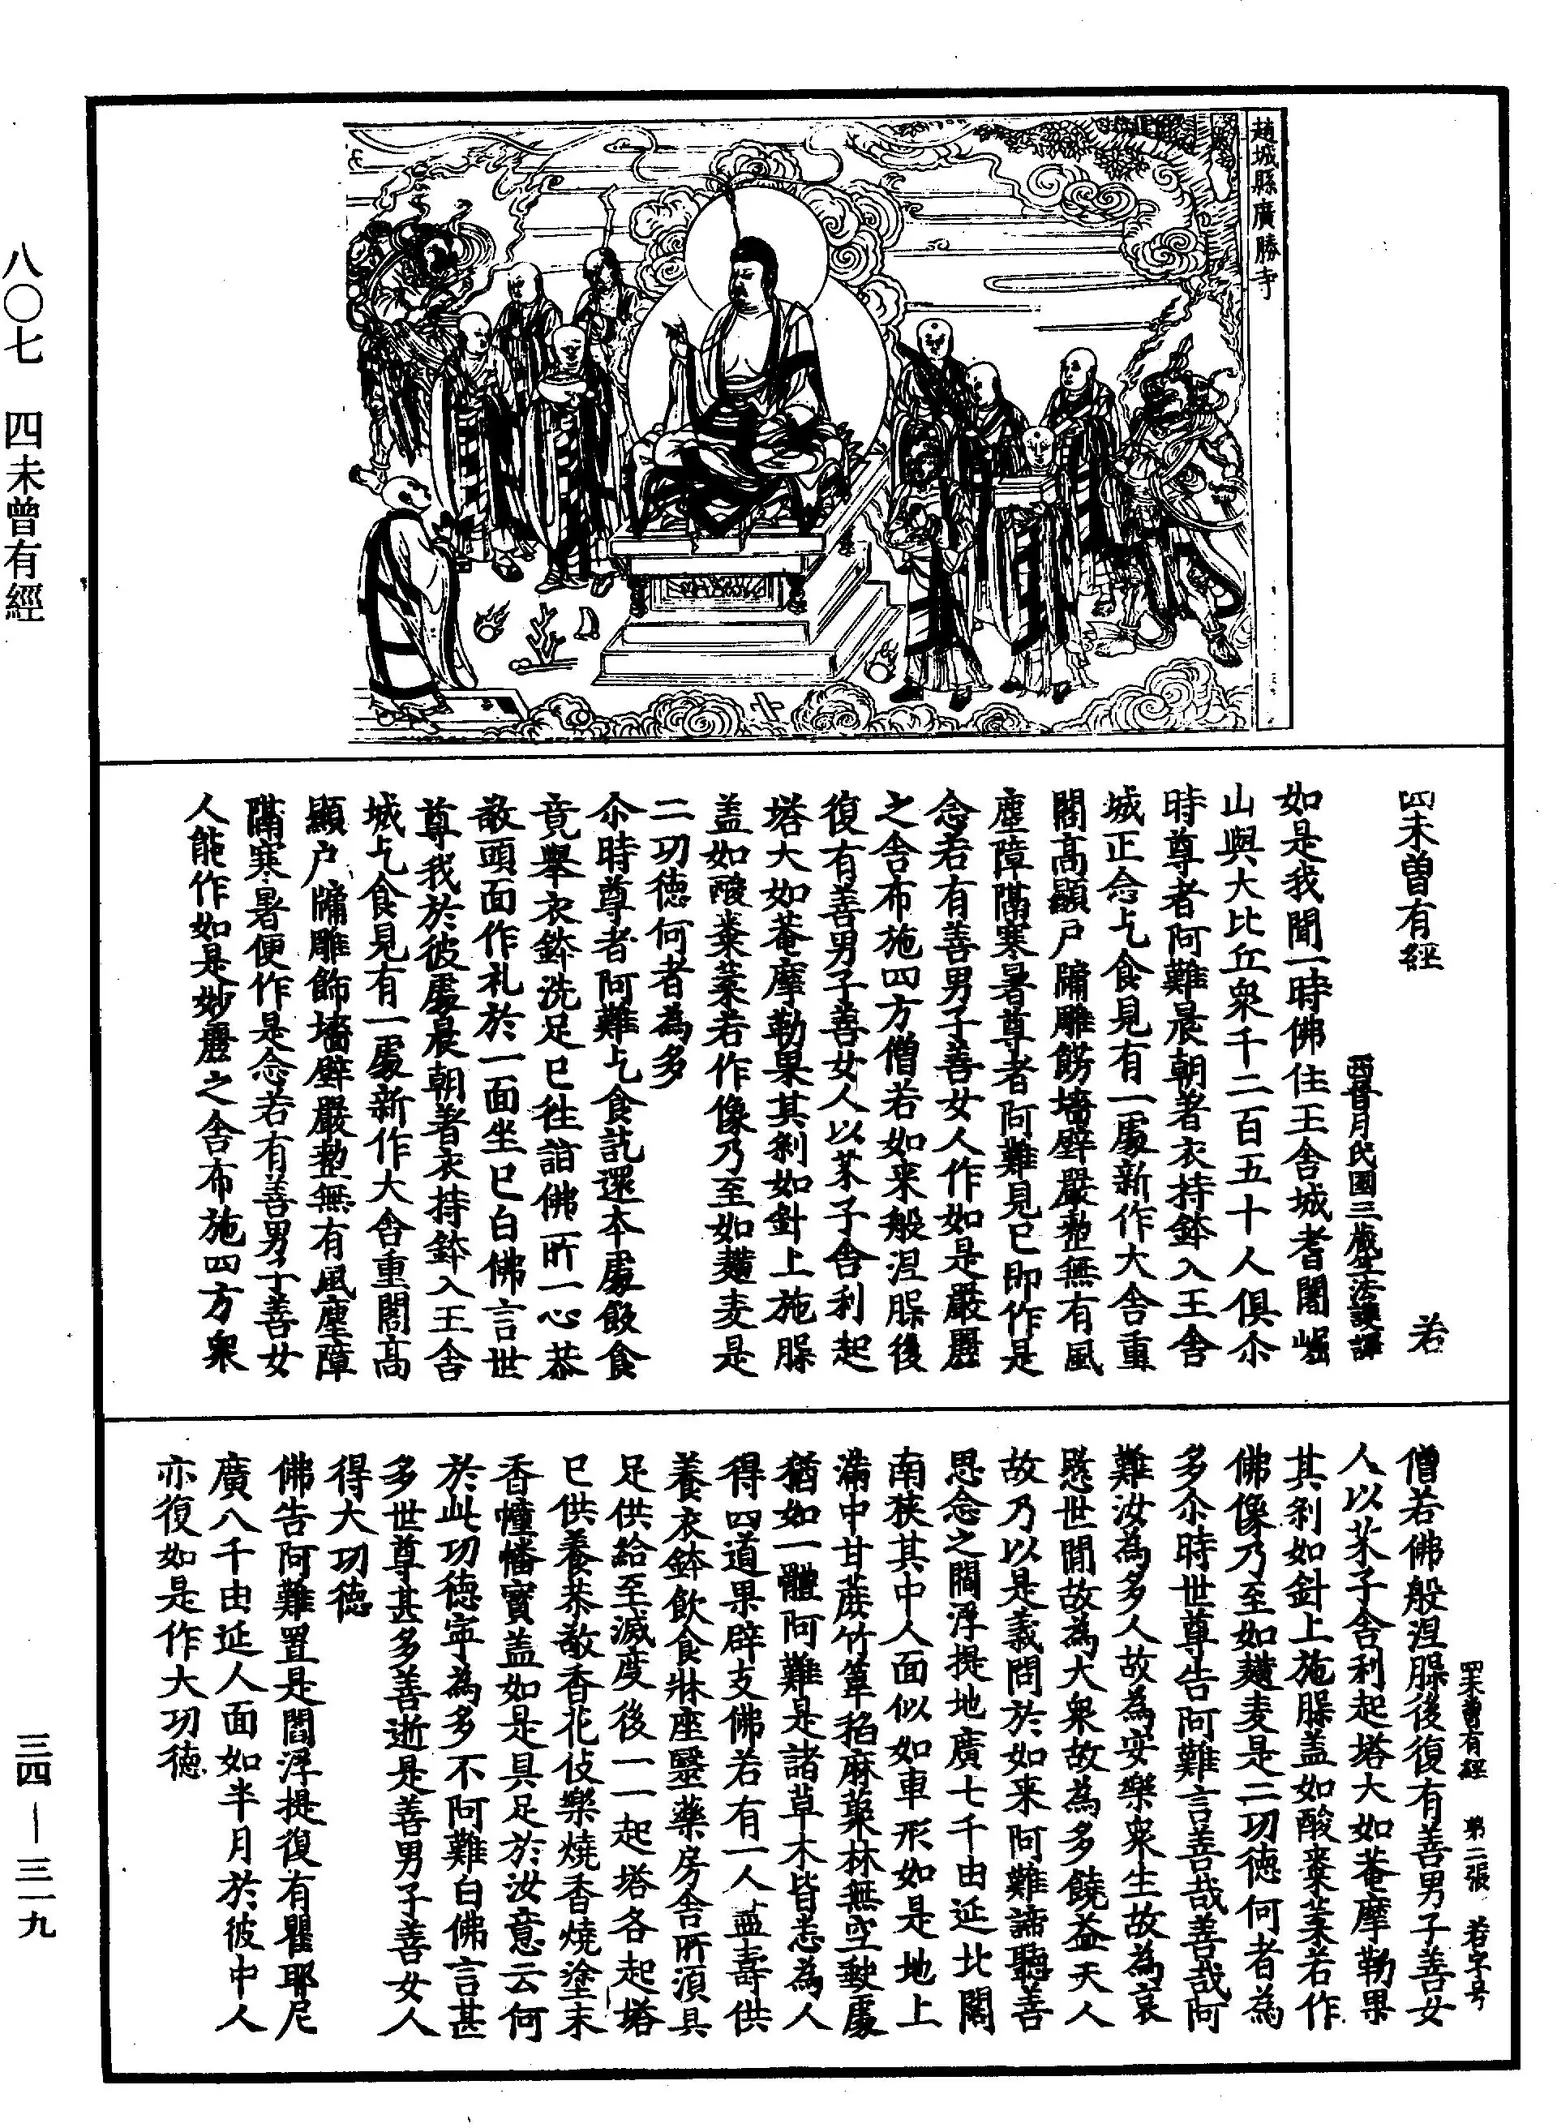 趙城縣廣勝寺
四未曾有經　若
西晉月氏國三藏竺法護譯
如是我聞一時佛住王舍城耆闍崛
山與大比丘衆千二百五十人俱尒
時尊者阿難晨朝著衣持鉢入王舍
城正念乞食見有一處新作大舍重
閣高顯戶牖雕飾墻壁嚴整無有風
塵障隔寒暑尊者阿難見已即作是
念若有善男子善女人作如是嚴麗
之舍布施四方僧若如来般涅槃後
復有善男子善女人以芥子舍利起
塔大如菴摩勒果其刹如針上施槃
盖如酸棗葉若作像乃至如䵃麦是
二功德何者為多
尒時尊者阿難乞食訖還本處飯食
竟舉衣鉢洗足已往詣佛所一心恭
敬頭面作礼於一面坐已白佛言世
尊我於彼處晨朝著衣持鉢入王舍
城乞食見有一處新作大舍重閣高
顯戶牖雕飾墻壁嚴整無有風塵障
隔寒暑便作是念若有善男子善女
人能作如是妙麗之舍布施四方衆
四未曾有經　第二張　若字号
僧若佛般涅槃後復有善男子善女
人以芥子舍利起塔大如菴摩勒果
其刹如針上施槃盖如酸棗葉若作
佛像乃至如䵃麦是二功德何者為
多尒時世尊告阿難言善哉善哉阿
難汝為多人故為安樂衆生故為哀
愍世間故為大衆故為多饒益天人
故乃以是義問於如来阿難諦聽善
思念之閻浮提地廣七千由延北闊
南狹其中人面似如車形如是地上
滿中甘蔗竹葦稻麻藂林無空缺處
猶如一體阿難是諸草木皆悉為人
得四道果辟支佛若有一人盡壽供
養衣鉢飲食牀座醫藥房舍所須具
足供給至滅度後一一起塔各起塔
已供養恭敬香花伎樂燒香燒塗末
香幢幡寶盖如是具足於汝意云何
於此功德寧為多不阿難白佛言甚
多世尊甚多善逝是善男子善女人
得大功德
佛告阿難置是閻浮提復有瞿耶尼
廣八千由延人面如半月於彼中人
亦復如是作大功德
八〇七　四未曾有經
三四—三一九